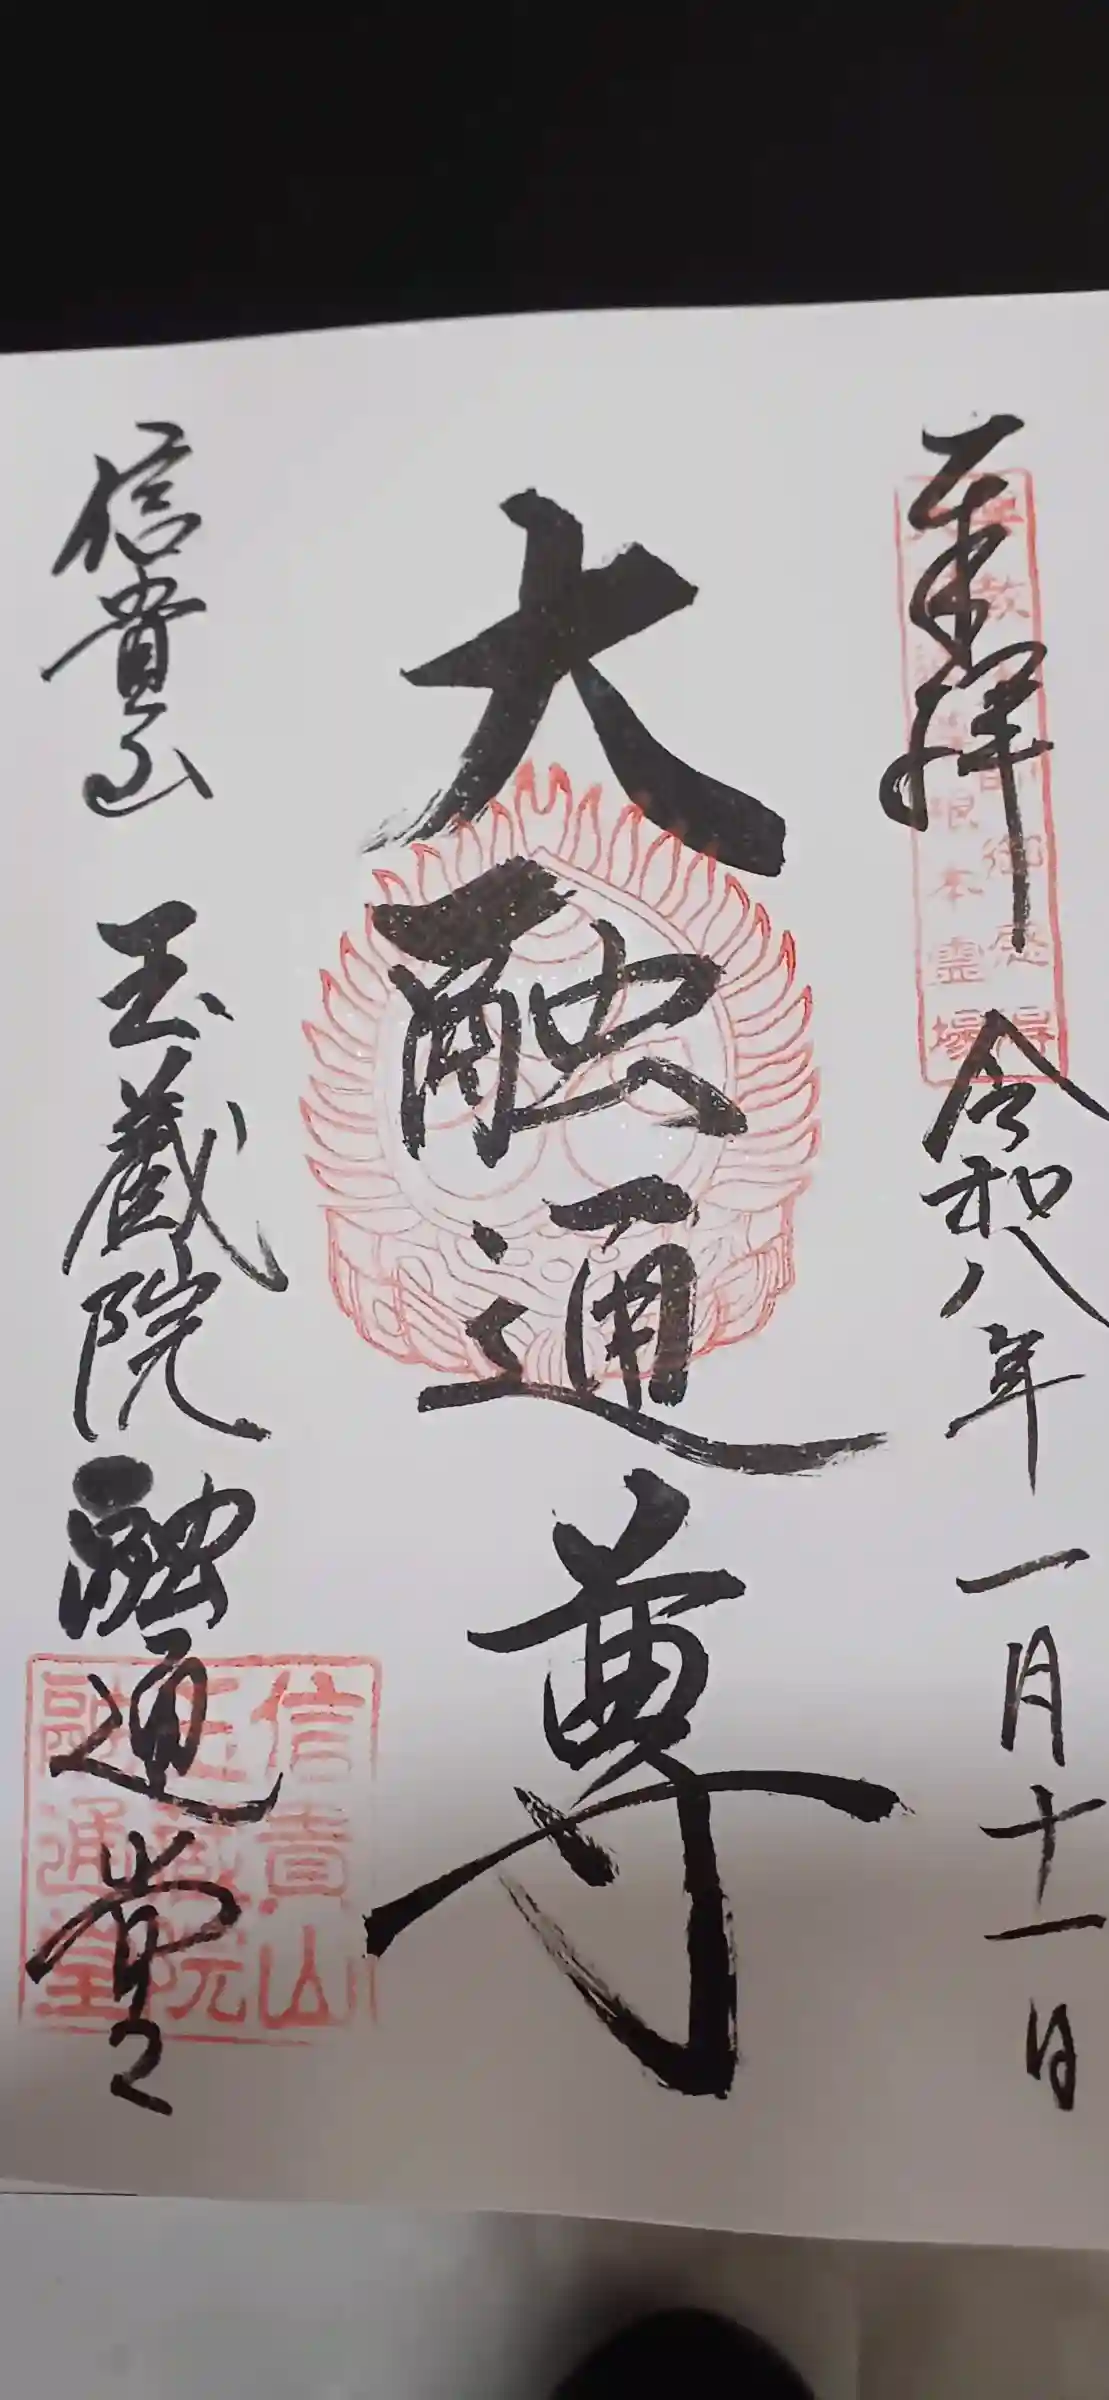 奉拝
令和八年一月十一日
大融通尊
信貴山
玉蔵院
融通堂
根本霊場
信貴山
玉蔵院
融通堂